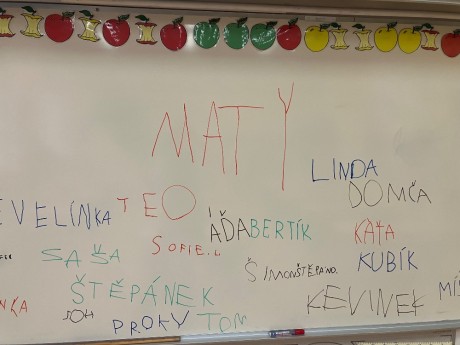 MATY
LINDA
DOMČA
EVELÍNKA
TEO
ÁĎA
BERTÍK
KÁŤA
SAŠA
SOFIE
ŠIMON
ŠTĚPÁN
KUBÍK
ŠTĚPÁNEK
KEVINEK
PROKY
TOM